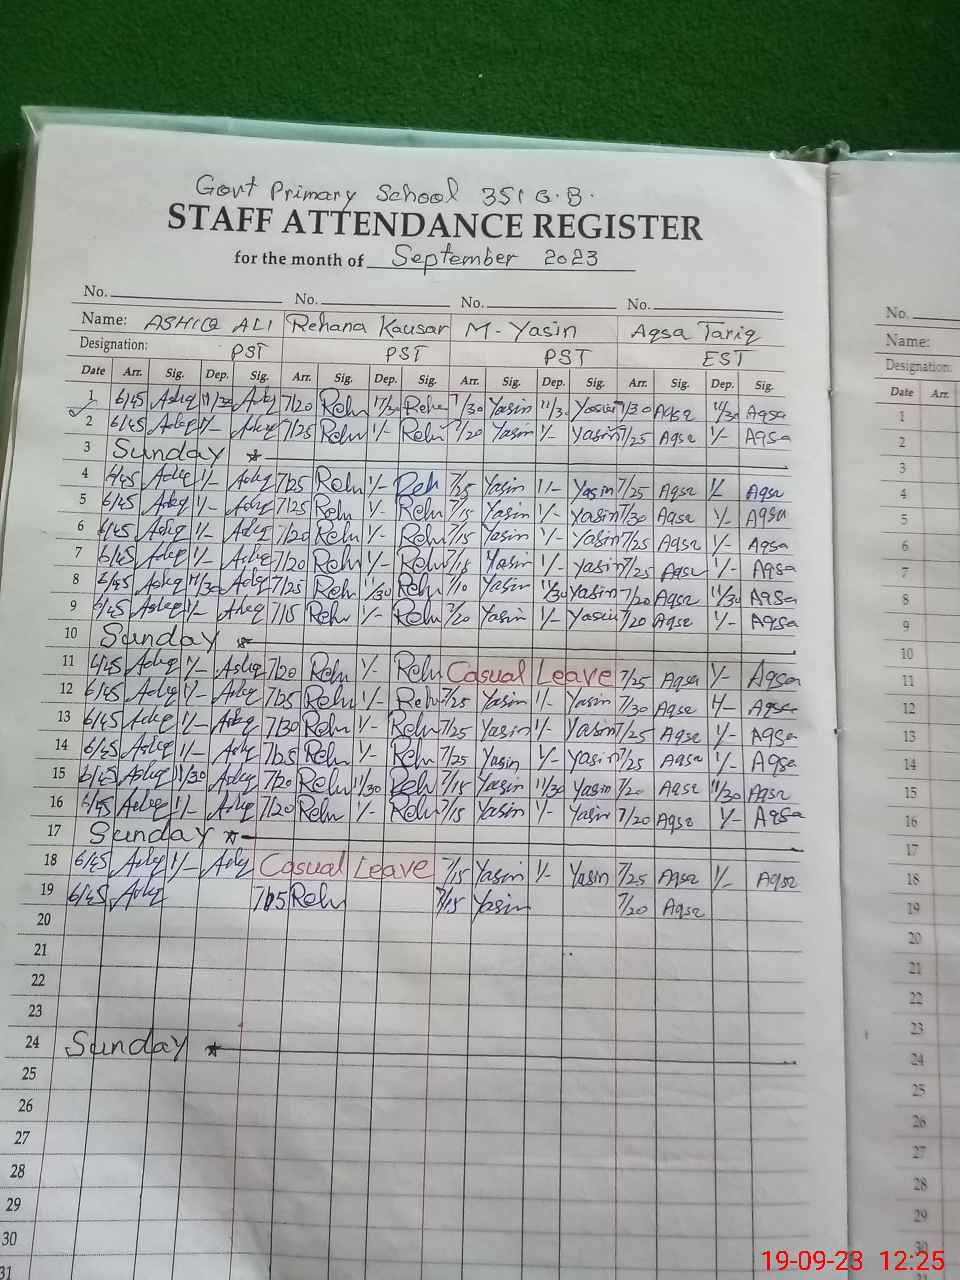 Govt Primary School 351 G.B.
STAFF ATTENDANCE REGISTER
for the month of September 2023
No. No. No. No.
Name: ASHIQ ALI Rehana Kausar M-Yasin Aqsa Tariq
Designation: PST PST PST EST
Date Arr. Sig. Dep. Sig. Arr. Sig. Dep. Sig. Arr. Sig. Dep. Sig. Arr. Sig. Dep. Sig.
1 6/45 Ashq 11/30 Ashq 7/20 Rehn 11/30 Rehn 7/30 Yasin 11/30 Yasin 7/30 Aqsa 11/30 Aqsa
2 6/45 Ashq 1/- Ashq 7/25 Rehn 1/- Rehn 7/20 Yasin 1/- Yasin 7/25 Aqsa 1/- Aqsa
3 Sunday
4 6/45 Ashq 1/- Ashq 7/25 Rehn 1/- Reh 7/25 Yasin 1/- Yasin 7/25 Aqsa 1/- Aqsa
5 6/45 Ashq 1/- Ashq 7/25 Rehn 1/- Rehn 7/15 Yasin 1/- Yasin 7/30 Aqsa 1/- Aqsa
6 6/45 Ashq 1/- Ashq 7/20 Rehn 1/- Rehn 7/15 Yasin 1/- Yasin 7/25 Aqsa 1/- Aqsa
7 6/45 Ashq 1/- Ashq 7/20 Rehn 1/- Rehn 7/15 Yasin 1/- Yasin 7/25 Aqsa 1/- Aqsa
8 6/45 Ashq 11/30 Ashq 7/25 Rehn 11/30 Rehn 7/10 Yasin 11/30 Yasin 7/20 Aqsa 11/30 Aqsa
9 6/45 Ashq 1/- Ashq 7/15 Rehn 1/- Rehn 7/20 Yasin 1/- Yasin 7/20 Aqsa 1/- Aqsa
10 Sunday
11 6/45 Ashq 1/- Ashq 7/20 Rehn 1/- Rehn Casual Leave 7/25 Aqsa 1/- Aqsa
12 6/45 Ashq 1/- Ashq 7/25 Rehn 1/- Rehn 7/25 Yasin 1/- Yasin 7/30 Aqsa 1/- Aqsa
13 6/45 Ashq 1/- Ashq 7/30 Rehn 1/- Rehn 7/25 Yasin 1/- Yasin 7/25 Aqsa 1/- Aqsa
14 6/45 Ashq 1/- Ashq 7/25 Rehn 1/- Rehn 7/25 Yasin 1/- Yasin 7/25 Aqsa 1/- Aqsa
15 6/45 Ashq 11/30 Ashq 7/20 Rehn 11/30 Reh 7/15 Yasin 11/30 Yasin 7/20 Aqsa 11/30 Aqsa
16 6/45 Ashq 1/- Ashq 7/20 Rehn 1/- Rehn 7/15 Yasin 1/- Yasin 7/20 Aqsa 1/- Aqsa
17 Sunday
18 6/45 Ashq 1/- Ashq Casual Leave 7/15 Yasin 1/- Yasin 7/25 Aqsa 1/- Aqsa
19 6/45 Ashq Rehn 7/15 Yasin 7/20 Aqsa
20
21
22
23
24 Sunday
25
26
27
28
29
30
31
No.
Name:
Designation:
Date Arr.
1
2
3
4
5
6
7
8
9
10
11
12
13
14
15
16
17
18
19
20
21
22
23
24
25
26
27
28
29
30
19-09-23 12:25